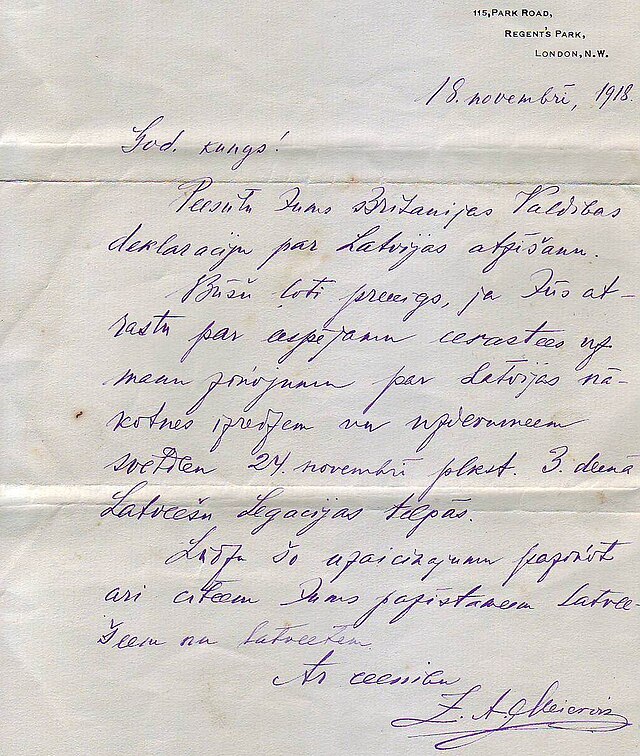 115, PARK ROAD,
REGENT'S PARK,
LONDON, N.W.
18. novembrī, 1918.
God. kungs!
Peesūtu Jums Britanijas Valdības
deklaraciju par Latvijas atzīšanu.
Būšu ļoti preecigs, ja Jūs at-
rastu par eespējamu eerastees uz
manu ziņojumu par Latvijas nā-
kotnes izredzem un uzdevumeem
svētdien 24. novembrī plkst. 3. deenā
Latveešu Legacijas telpās.
Lūdzu šo uzaicinajumu paziņot
ari citeem Jums pazistameem latvee-
šeem un latveetem.
Ar ceenibu
Z. A. Meierovics